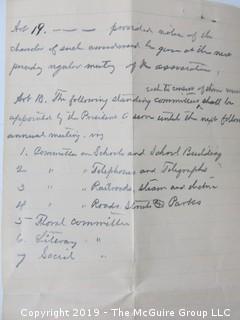 Art 19. — — — provided notice of the
character of such amendment be given at the next
preceding regular meeting of the association.
such to consist of three members
Art 13. The following standing committees shall be
appointed by the President as soon until the next following
annual meeting, viz
1. Committee on Schools and School Building
2 " " Telephones and Telegraphs
3 " " Railroads, steam and electric
4 " " Roads, Streets & Parks
5 Floral Committee
6. Literary "
7 Social "
Copyright © 2019 - The McGuire Group LLC